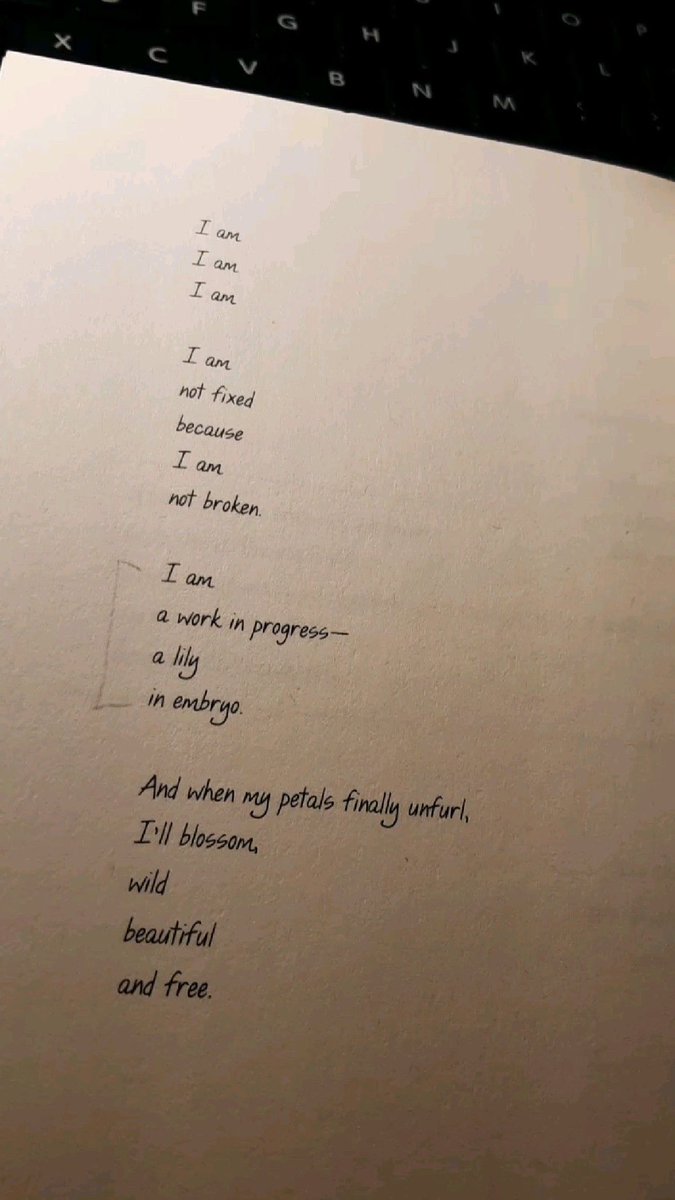 F G H I O P
X C V B N M J K L
I am
I am
I am
I am
not fixed
because
I am
not broken.
I am
a work in progress—
a lily
in embryo.
And when my petals finally unfurl,
I'll blossom,
wild
beautiful
and free.